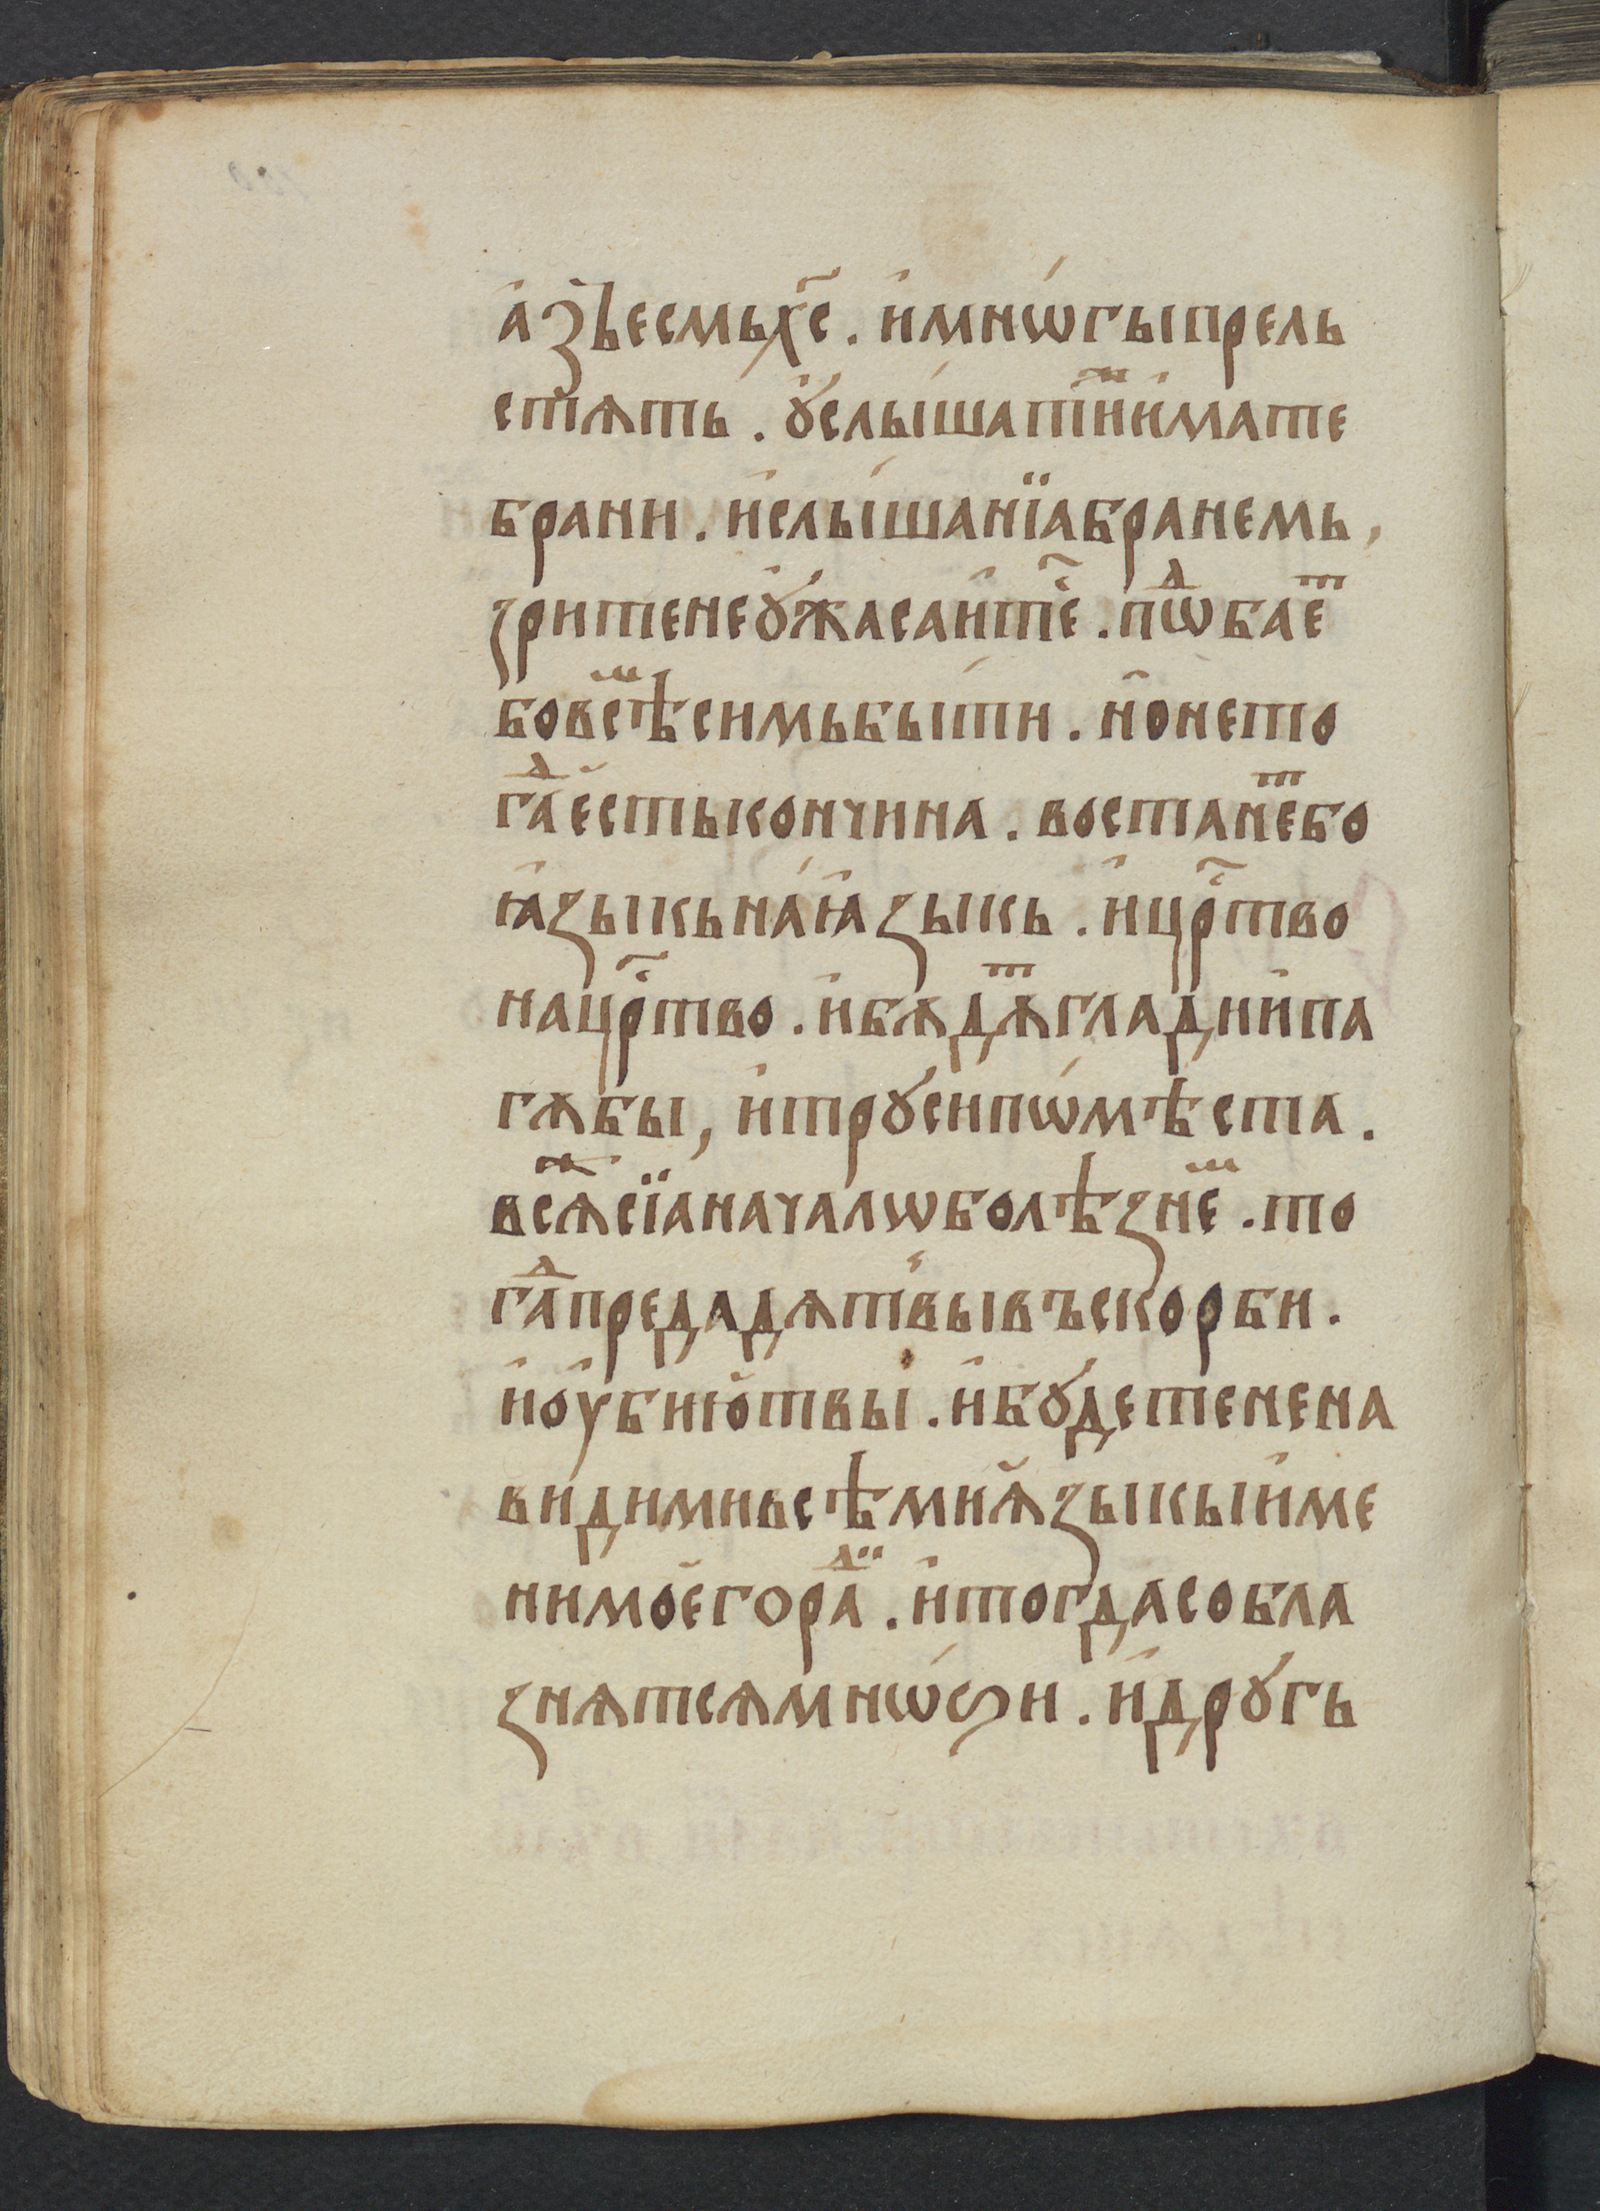 а҆зъесмьх҃с . и҆мнѡ́гыпрель
стѧть . ꙋ҆слы́шатⷤни҆мате
брани . и҆слы́шанїабранемь ,
зритенеꙋ҆́жасаи҆те҃ . пѡⷣбаеⷮ
бовсⷨѣсимьбы́ти . нѻ҆нето
гаⷣе҆стькончина . востанеⷮбо
ꙗ҆зыкьнаꙗ҆зыкь . и҆цр҃тво
нацр҃тво . и҆бѧдѧⷮгладии҆па
гѧбы , и҆трꙋ́сипѡ́мѣста .
всѧⷤсїаначалѡболѣзнеⷨ . то
гаⷣпредадѧтвывъскорби .
и҆оу҆бию҆твы . и҆бꙋ́детенена
видимивсѣмиꙗ҆зыкыи҆ме
нимое҆гораⷣ . и҆тогдасобла
знѧтсѧмнѡ́ѕи . и҆дрꙋ́гь